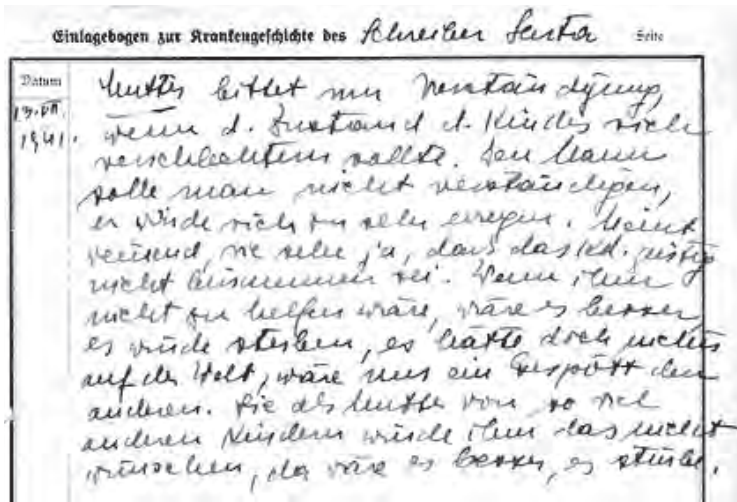 Einlagebogen zur Krankengeschichte des Schreiber Herta Seite
Datum
13.VII.
1941.
Mutter bittet um Verständigung,
wenn d. Zustand d. Kindes sich
verschlechtern sollte. Den Mann
solle man nicht verständigen,
er würde sich zu sehr erregen. Meint
weinend, sie sehe ja, dass das Kd. geistig
nicht beisammen sei. Wenn ihm
nicht zu helfen wäre, wäre es besser,
es würde sterben, es hätte doch nichts
auf der Welt, wäre nur ein Gespött der
anderen. Sie als Mutter von so viel
anderen Kindern würde ihm das nicht
wünschen, da wäre es besser, es stürbe.